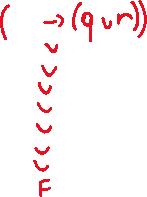 ( → (q ∨ r))
∨
∨
∨
∨
∨
∨
∨
F